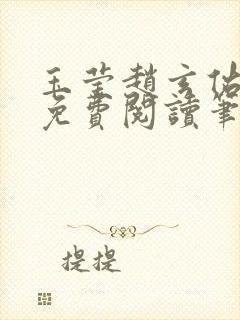 玉莹趙玄佑
免費閱讀筆
提提